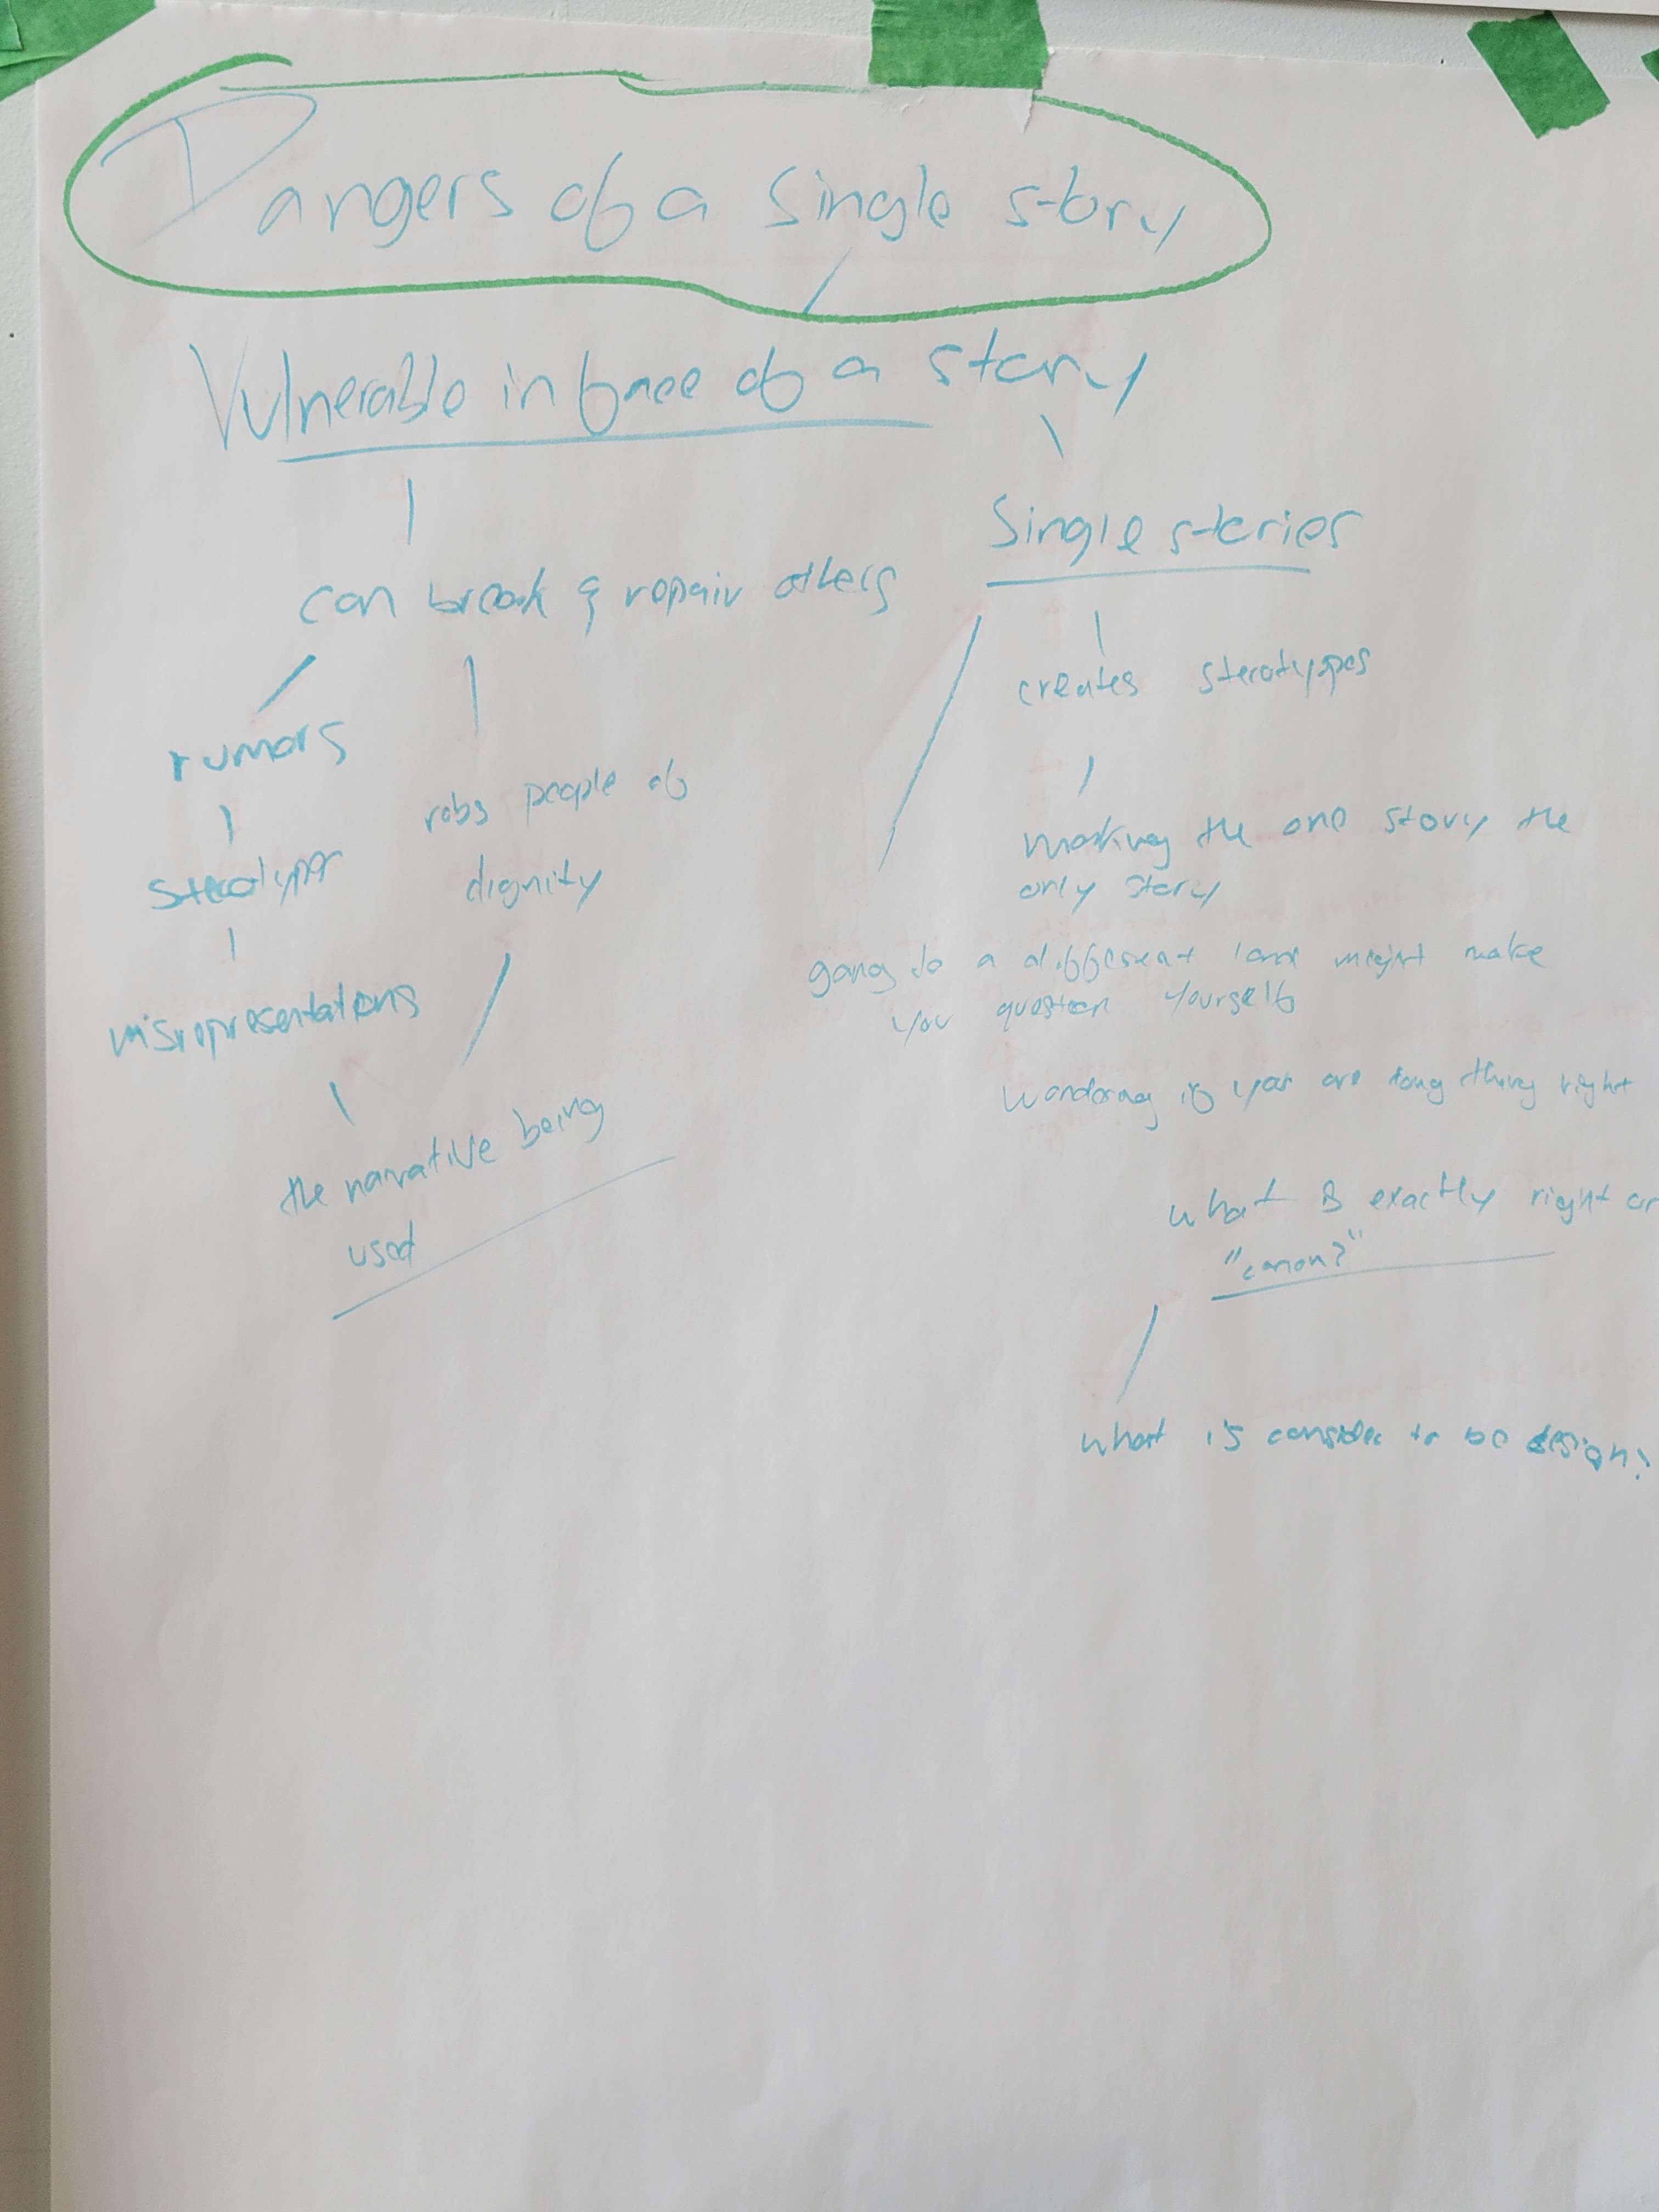 Dangers of a single story
Vulnerable in face of a story
can break & repair others
rumors
robs people of
dignity
misrepresentations
the narrative being
used
Single stories
creates sterotypes
making the one story the
only story
going to a different land might make
you question yourself
wondering if you are doing thing right
what is exactly right or
"canon?"
what is consider to be design?